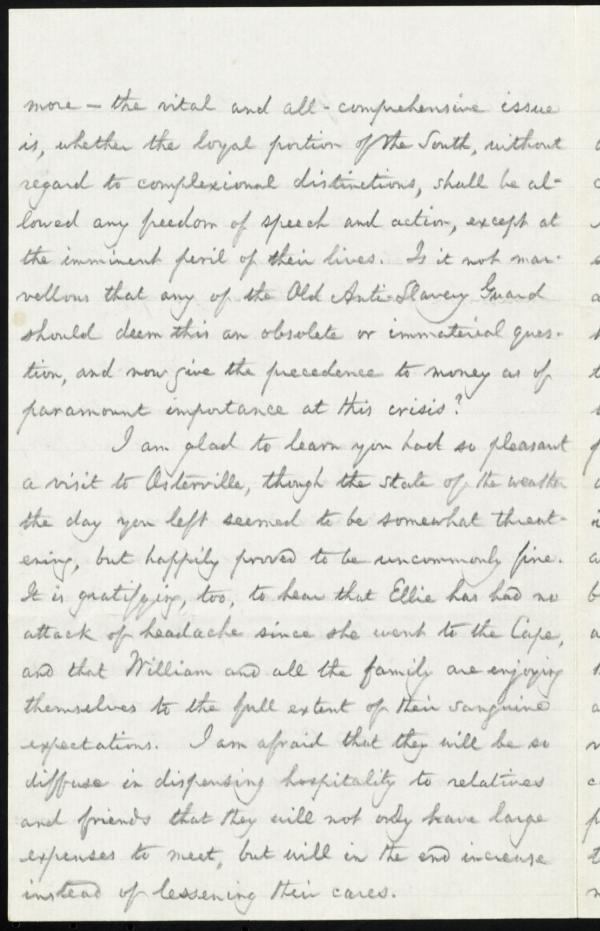 more — the vital and all-comprehensive issue
is, whether the loyal portion of the South, without
regard to complexional distinctions, shall be al-
lowed any freedom of speech and action, except at
the imminent peril of their lives. Is it not mar-
vellous that any of the Old Anti-Slavery Guard
should deem this an obsolete or immaterial ques-
tion, and now give the precedence to money as of
paramount importance at this crisis?
I am glad to learn you had so pleasant
a visit to Osterville, though the state of the weather
the day you left seemed to be somewhat threat-
ening, but happily proved to be uncommonly fine.
It is gratifying, too, to hear that Ellie has had no
attack of headache since she went to the Cape,
and that William and all the family are enjoying
themselves to the full extent of their sanguine
expectations. I am afraid that they will be so
diffuse in dispensing hospitality to relatives
and friends that they will not only have large
expenses to meet, but will in the end increase
instead of lessening their cares.